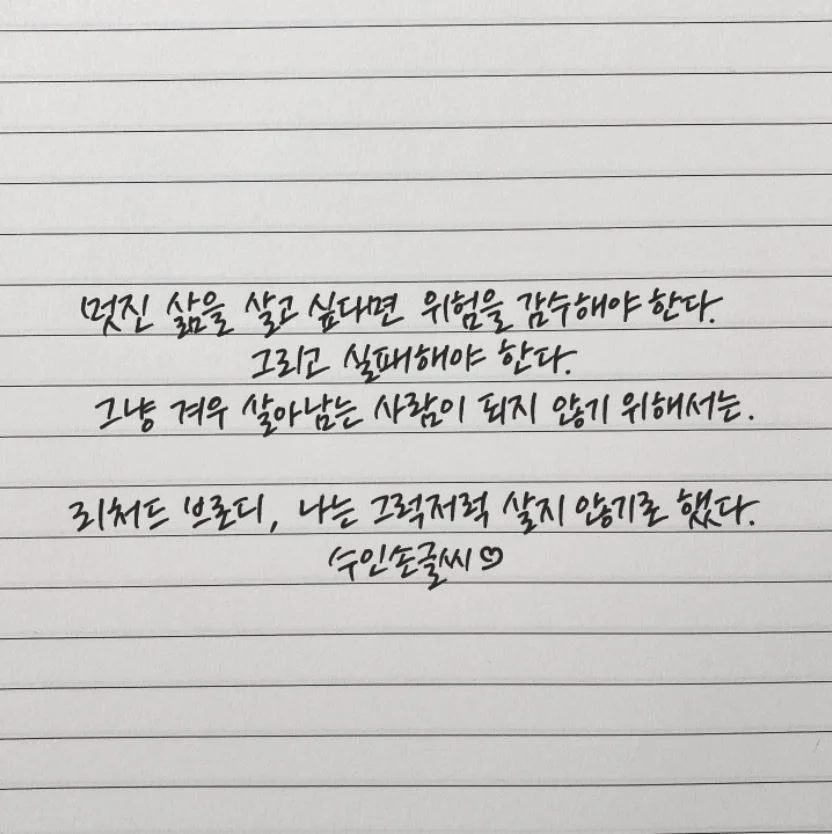 멋진 삶을 살고 싶다면 위험을 감수해야 한다.
그리고 실패해야 한다.
그냥 겨우 살아남는 사람이 되지 않기 위해서는.
리처드 브로디, 나는 그럭저럭 살지 않기로 했다.
수인손글씨♡